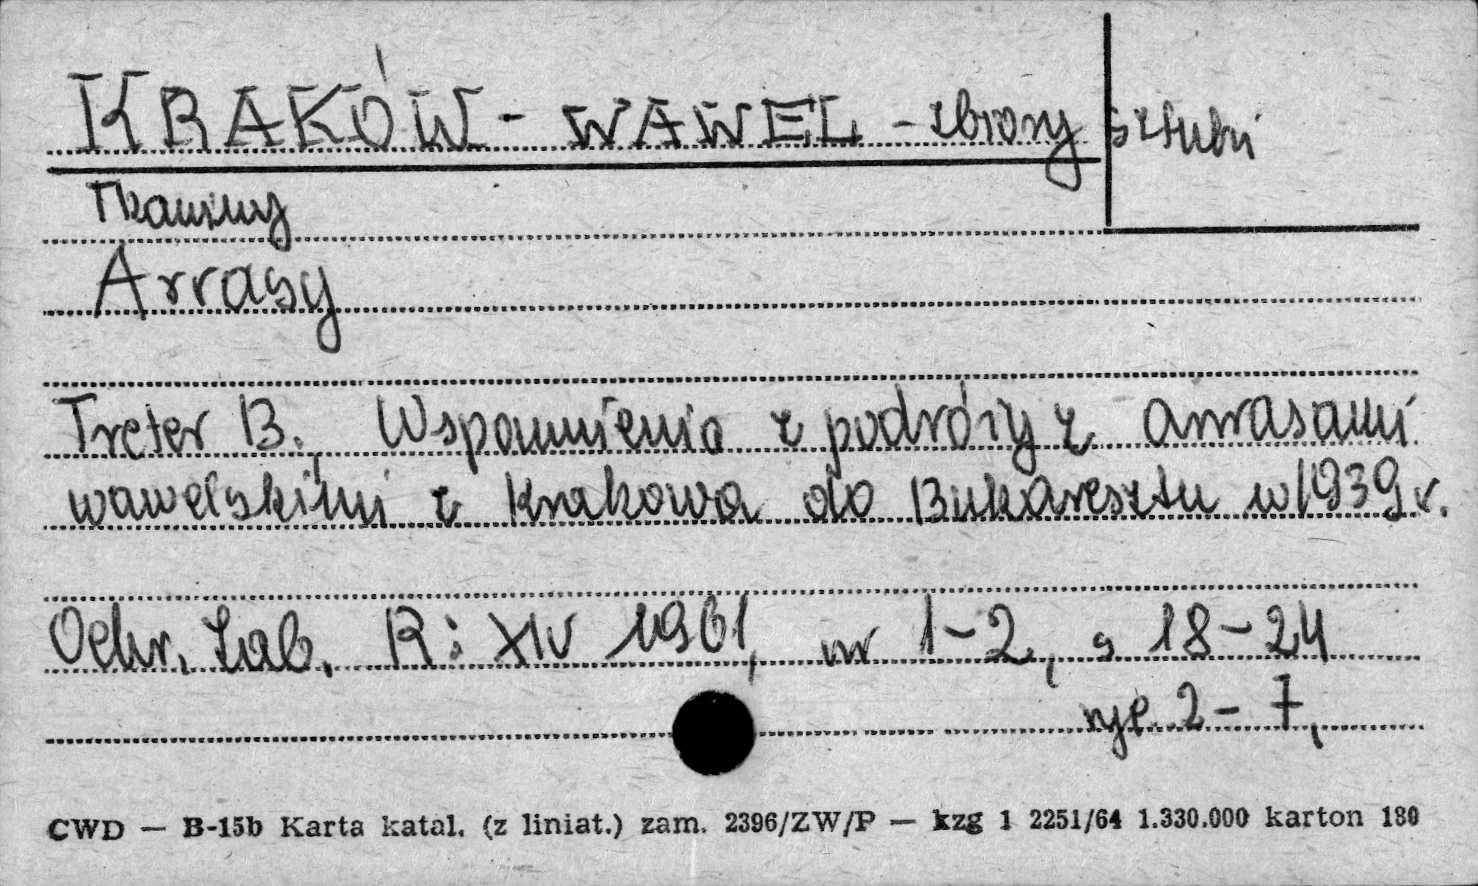 KRAKÓW - WAWEL - zbiory sztuki
Tkaniny
Arrasy
Treter B., Wspomnienia z podróży z arrasami
wawelskimi z Krakowa do Bukaresztu w 1939 r.
Ochr. Zab. R: XIV 1961, nr 1-2, s 18-24
ryc. 2-7,
CWD — B-15b Karta katal. (z liniat.) zam. 2396/ZW/P — kzg 1 2251/64 1.330.000 karton 180